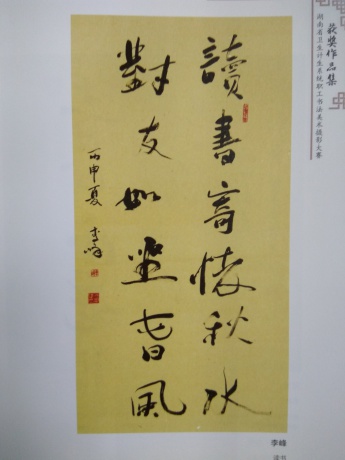 获奖作品集
湖南省卫生计生系统职工书法美术摄影大赛
讀書寄懷秋水
對友如坐旾風
丙申夏 李峰
李峰